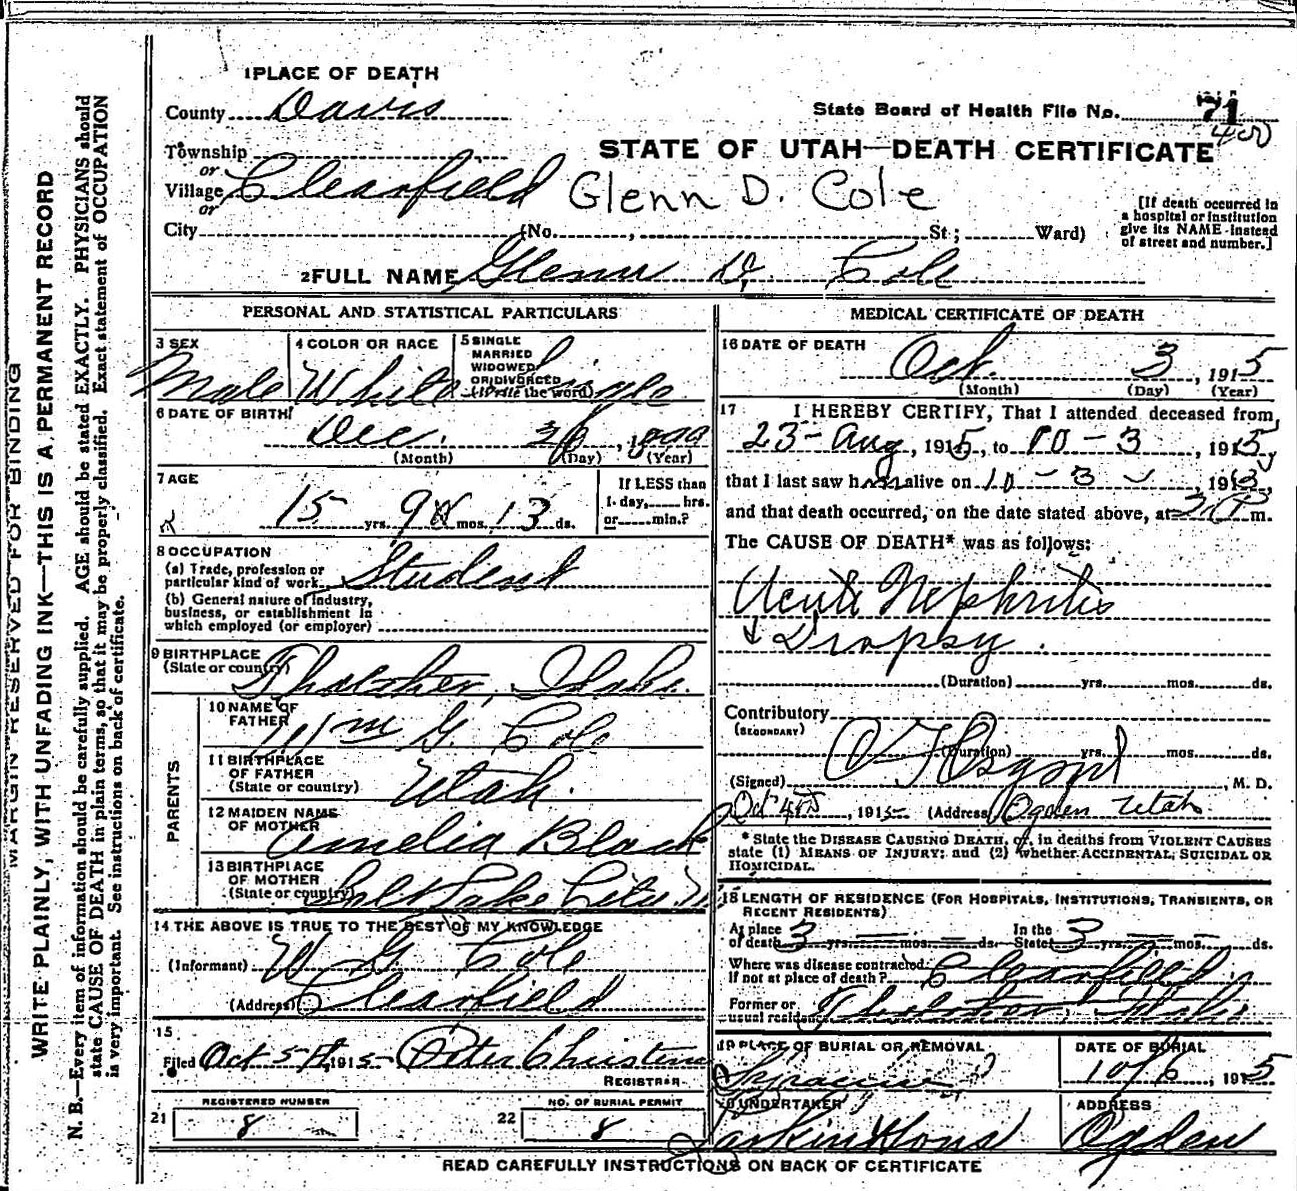 MARGIN RESERVED FOR BINDING
WRITE PLAINLY, WITH UNFADING INK—THIS IS A PERMANENT RECORD
N. B.—Every item of information should be carefully supplied. AGE should be stated EXACTLY. PHYSICIANS should
state CAUSE OF DEATH in plain terms, so that it may be properly classified. Exact statement of OCCUPATION
is very important. See instructions on back of certificate.
1 PLACE OF DEATH
County Davis
State Board of Health File No. 71
400
Township
or
STATE OF UTAH—DEATH CERTIFICATE
Village Clearfield
Glenn D. Cole
or
City (No. , St; Ward)
[If death occurred in
a hospital or institution
give its NAME instead
of street and number.]
2 FULL NAME Glenn D. Cole
PERSONAL AND STATISTICAL PARTICULARS
3 SEX Male
4 COLOR OR RACE White
5 SINGLE
MARRIED
WIDOWED
OR DIVORCED
(Write the word) Single
6 DATE OF BIRTH
Dec.
(Month) (Day) (Year)
7 AGE
15 yrs. 9 mos. 13 ds.
If LESS than
1 day, hrs.
or min.?
8 OCCUPATION
(a) Trade, profession or
particular kind of work Student
(b) General nature of industry,
business, or establishment in
which employed (or employer)
9 BIRTHPLACE
(State or country) Thatcher, Idaho
PARENTS
10 NAME OF
FATHER Wm G. Cole
11 BIRTHPLACE
OF FATHER
(State or country) Utah.
12 MAIDEN NAME
OF MOTHER Amelia Black
13 BIRTHPLACE
OF MOTHER
(State or country) Salt Lake City
14 THE ABOVE IS TRUE TO THE BEST OF MY KNOWLEDGE
(Informant) W G. Cole
(Address) Clearfield
15
Filed Oct 5th, 1915 Peter Christensen
REGISTRAR
21 REGISTERED NUMBER
8
22 NO. OF BURIAL PERMIT
8
MEDICAL CERTIFICATE OF DEATH
16 DATE OF DEATH
Oct. 3, 1915
(Month) (Day) (Year)
17 I HEREBY CERTIFY, That I attended deceased from
23-Aug, 1915, to 10-3, 1915,
that I last saw h alive on 10-3, 191
and that death occurred, on the date stated above, at m.
The CAUSE OF DEATH* was as follows:
Acute Nephritis
& Dropsy.
(Duration) yrs. mos. ds.
Contributory
(SECONDARY)
(Duration) yrs. mos. ds.
(Signed) M. D.
Oct 4th, 1915 (Address) Ogden Utah
* State the DISEASE CAUSING DEATH, or, in deaths from VIOLENT CAUSES
state (1) MEANS OF INJURY; and (2) whether ACCIDENTAL, SUICIDAL OR
HOMICIDAL.
18 LENGTH OF RESIDENCE (FOR HOSPITALS, INSTITUTIONS, TRANSIENTS, OR
RECENT RESIDENTS)
At place In the
of death 3 yrs. mos. ds. State 3 yrs. mos. ds.
Where was disease contracted,
If not at place of death? Clearfield
Former or
usual residence Thatcher, Idaho
19 PLACE OF BURIAL OR REMOVAL
Syracuse
DATE OF BURIAL
10/6, 1915
20 UNDERTAKER
Larkin & Sons
ADDRESS
Ogden
READ CAREFULLY INSTRUCTIONS ON BACK OF CERTIFICATE